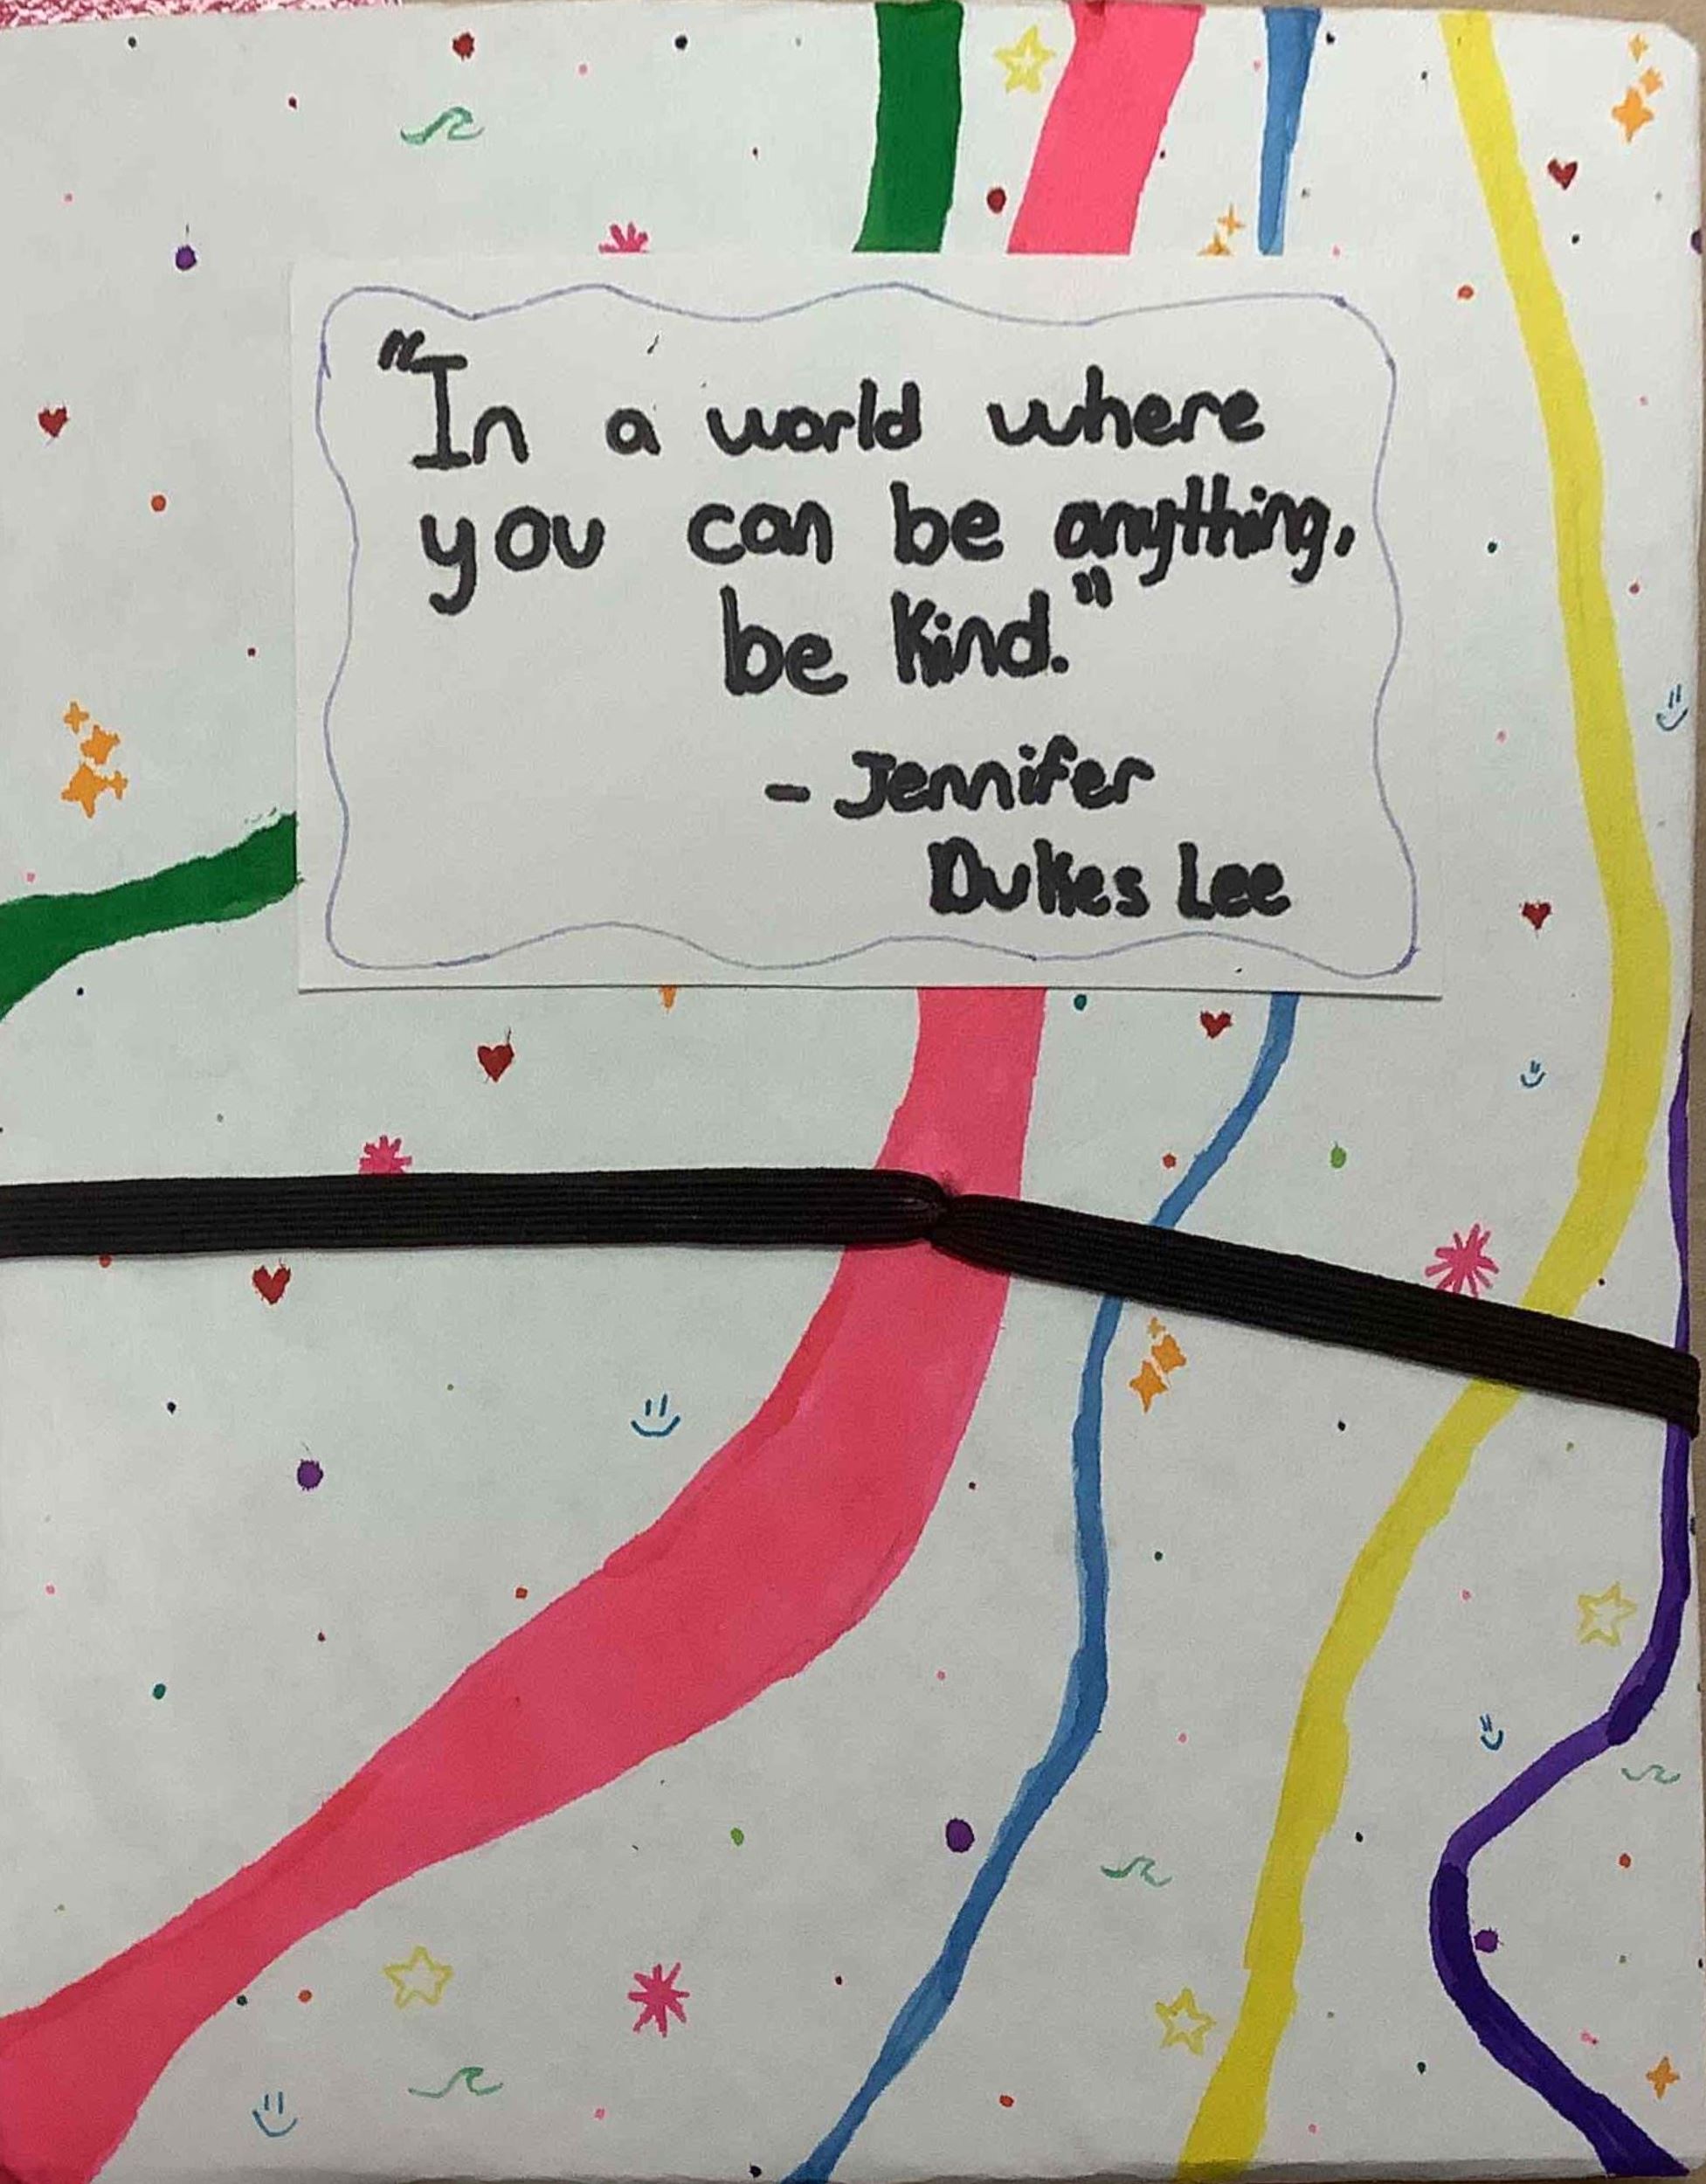 "In a world where
you can be anything,
be kind."
- Jennifer
Dukes Lee